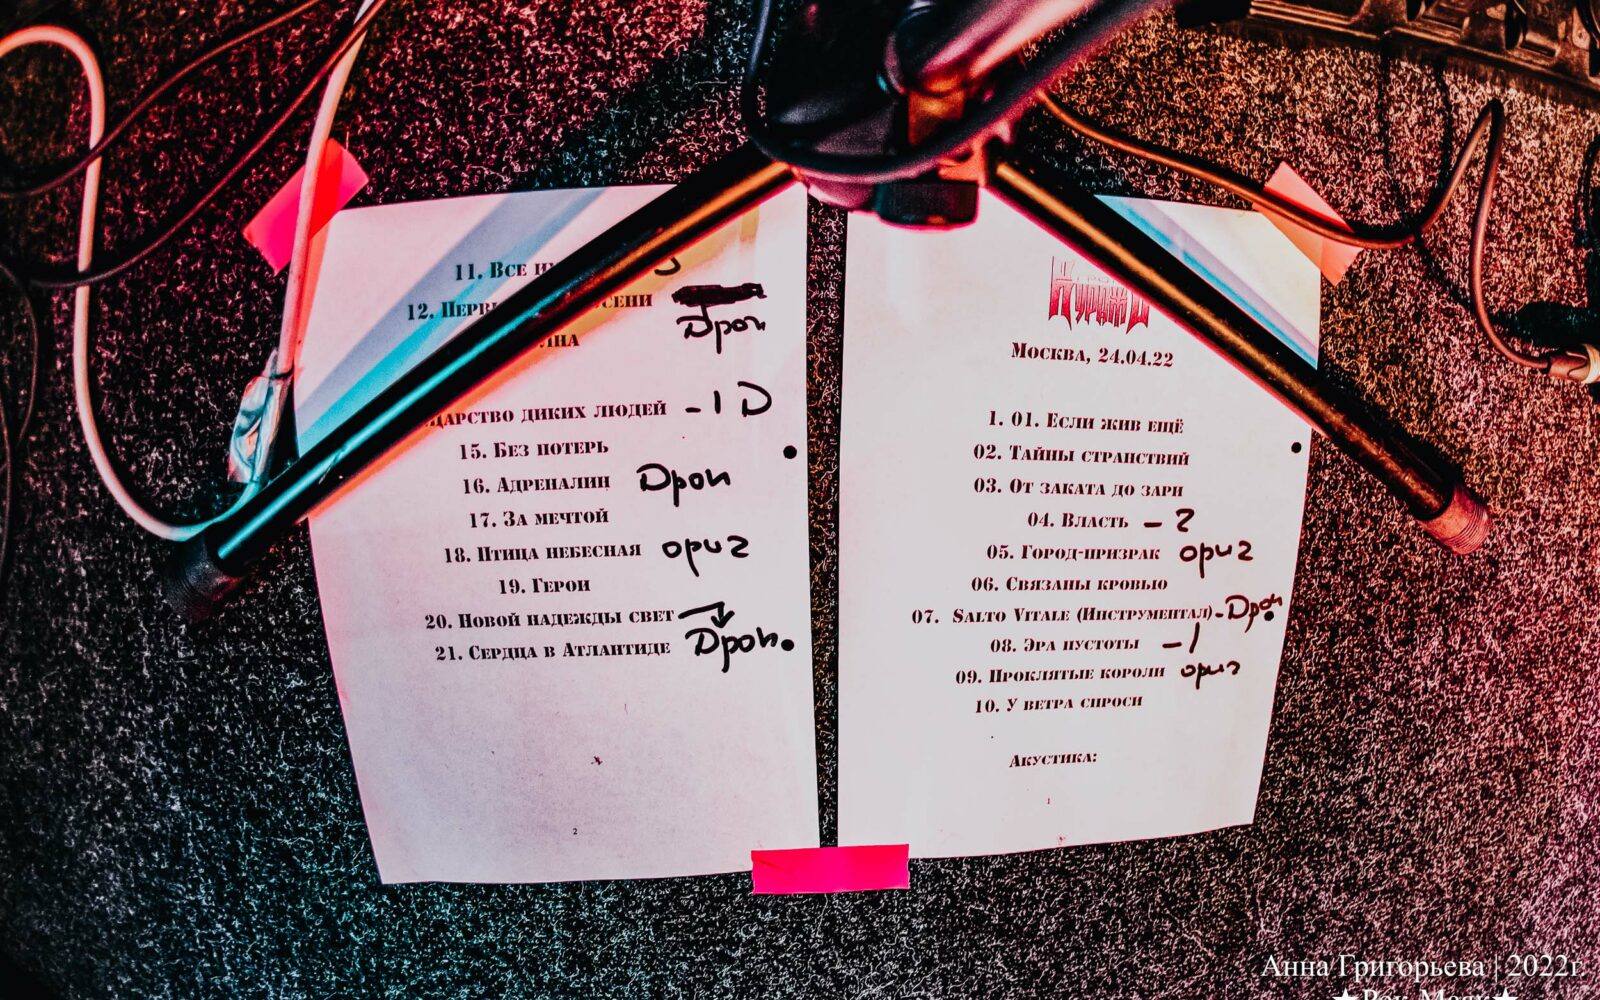 Кураж
Москва, 24.04.22
1. 01. Если жив ещё
02. Тайны странствий
03. От заката до зари
04. Власть - ?
05. Город-призрак ориг
06. Связаны кровью
07. Salto Vitale (Инструментал) - Дроп
08. Эра пустоты - 1
09. Проклятые короли ориг
10. У ветра спроси
Акустика:
1
11. Все
12.
Дроп
диких людей - 1 D
15. Без потерь
16. Адреналин Дроп
17. За мечтой
18. Птица небесная ориг
19. Герои
20. Новой надежды свет
21. Сердца в Атлантиде Дроп.
2
Анна Григорьева | 2022г.